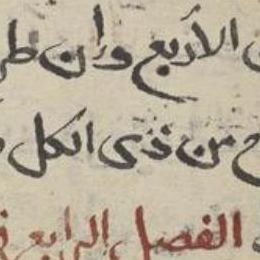 الأربع وان طر
من ذى الكل
الفصل الرابع فى